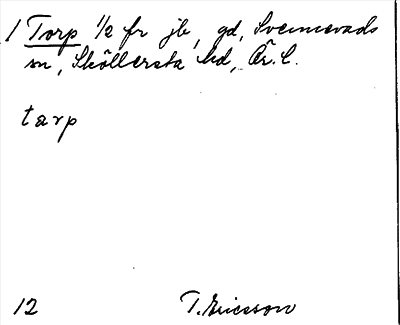 1 Torp 1/2 fr jb, gd, Svennevads
sn, Sköllersta hd, Ör. l.
tarp
12 T. Ericsson